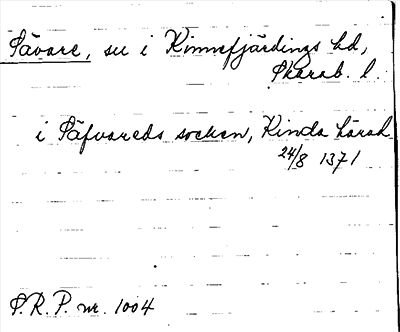 Sävare, su i Kinnefjärdings hd,
Skarab. l.
i Säfvareds socken, Kinda härad
24/8 1371
S.R.P. nr. 1004